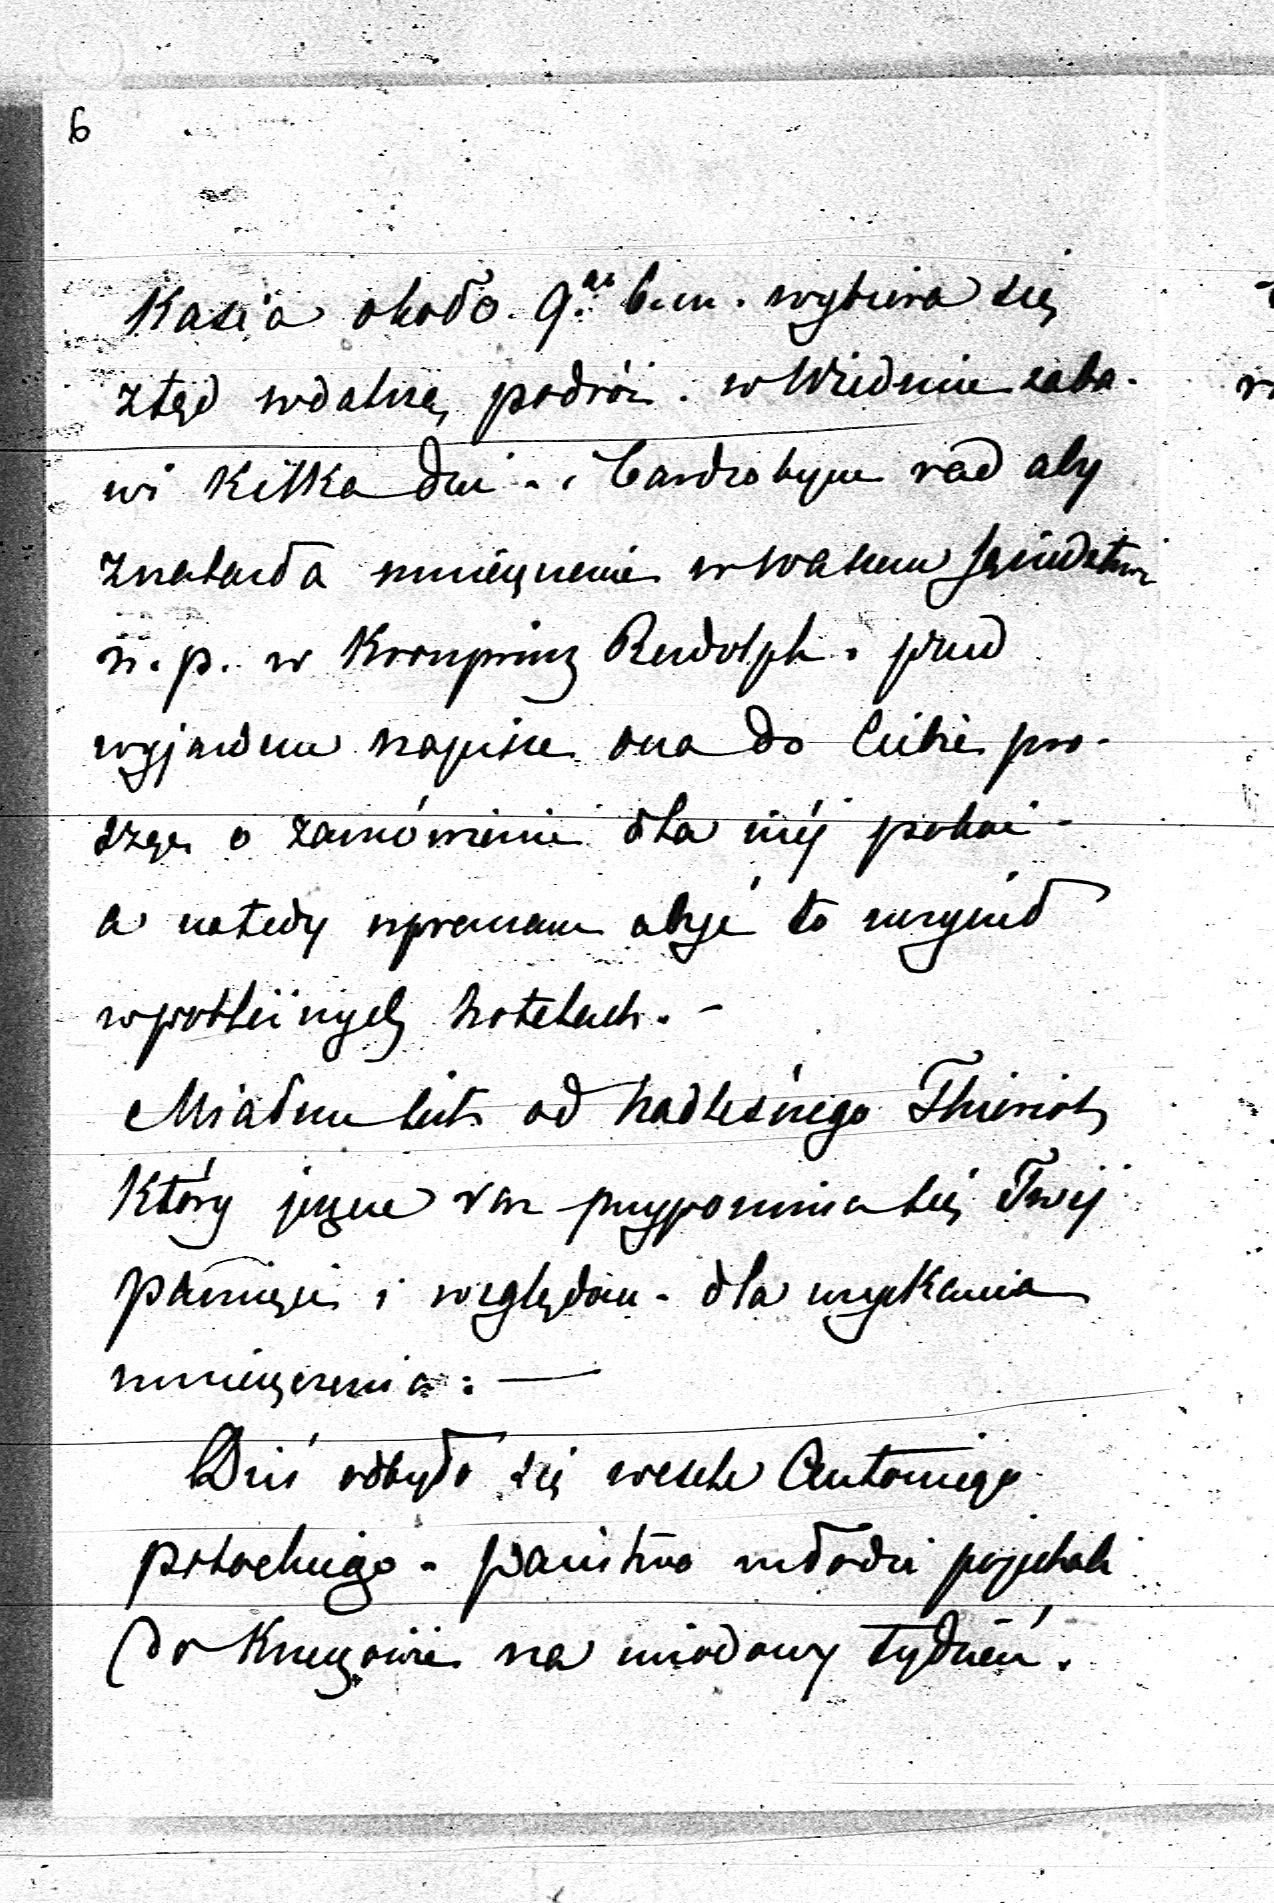 6
Kasia około 9.go b.m. wybiera się
ztąd w dalszą podróż. w Wiedniu zaba-
wi kilka dni - i bardzobym rad aby
znalazła umieszczenie w waszem sąsiedztwie
n.p. w Kronprinz Rudolph. przed
wyjazdem napisze ona do Ciebie pro-
sząc o zamówienie dla niéj pokoi -
a wtedy upraszam abyś to uczynił
w pobliżnych hotelach. -
Miałem list od nadleśnego Thieriot
który jeszcze raz przypomina się Twéj
pamięci i względom - dla uzyskania
umieszczenia: —
Dziś odbyło się wesele Antoniego
Potockiego - państwo młodzi pojechali
do Krzeszowic na miodowy tydzień.